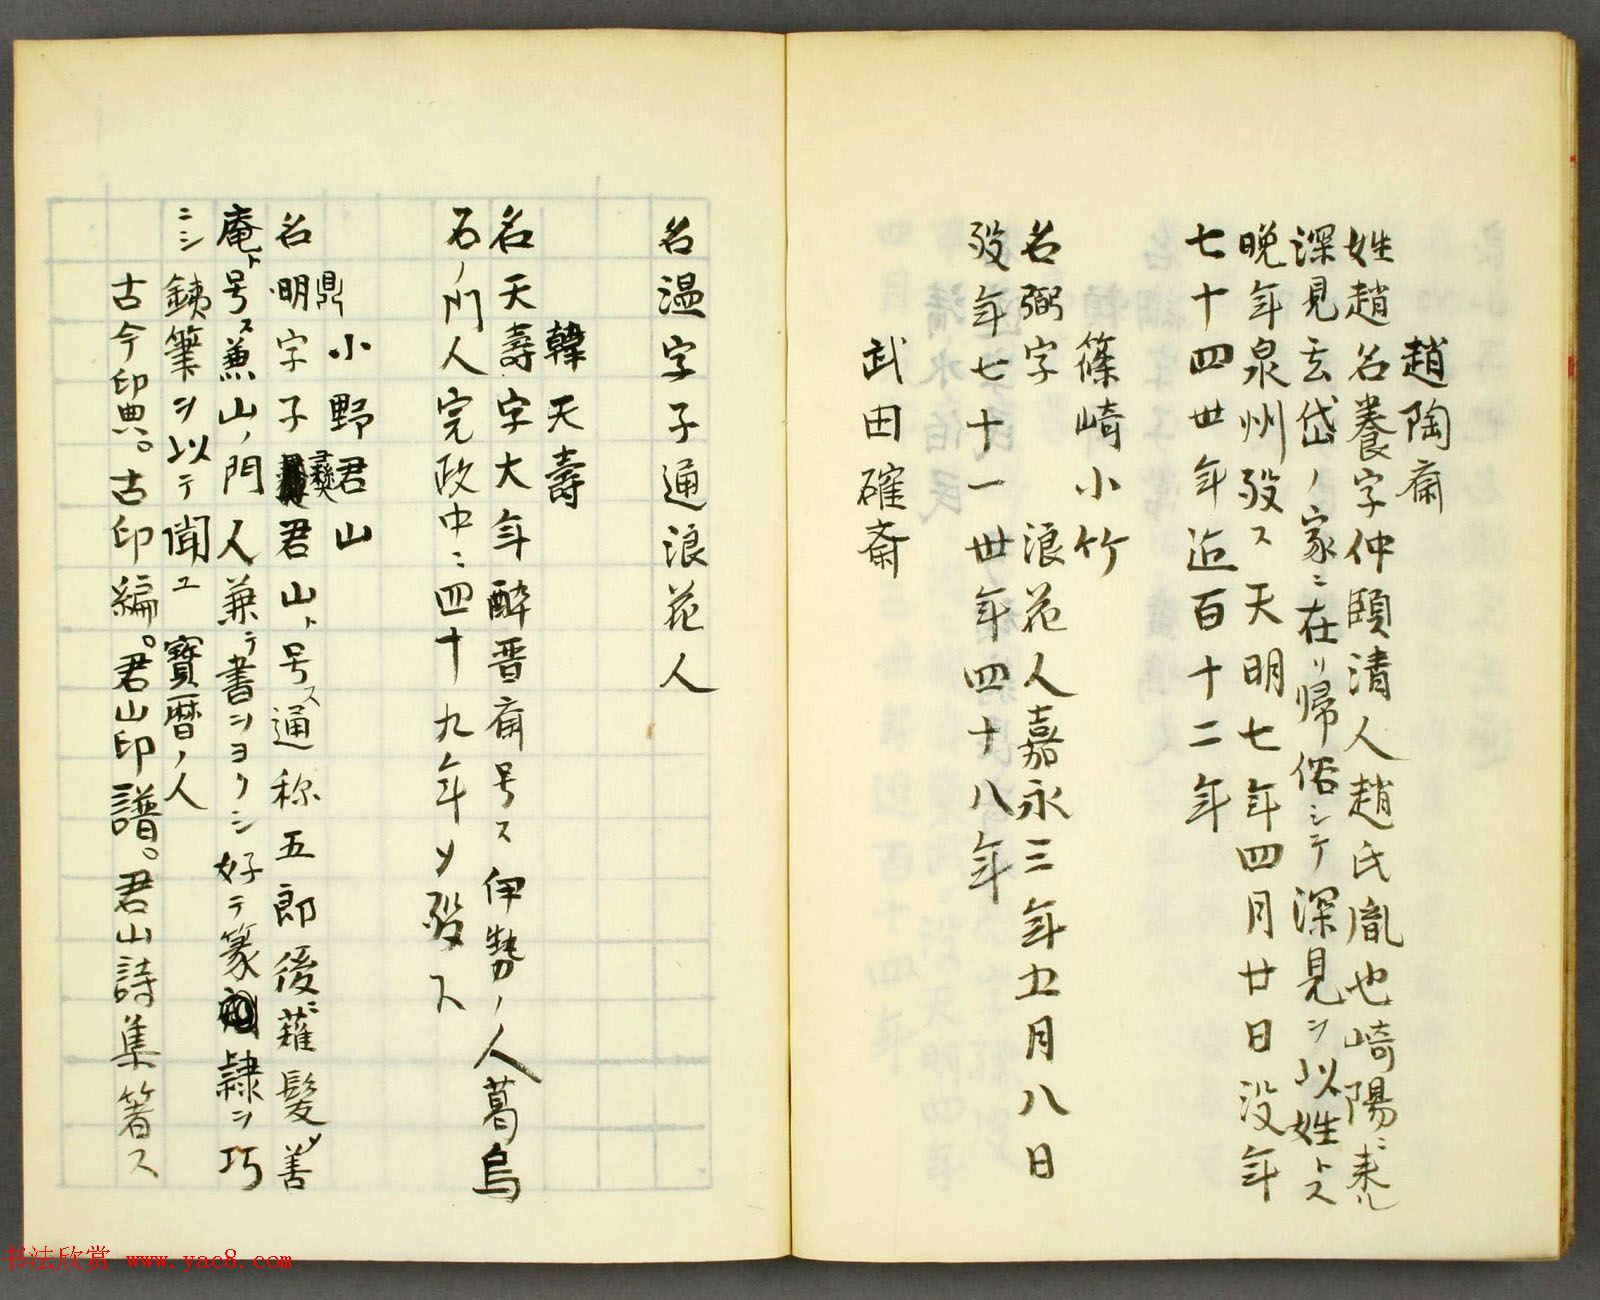 趙陶斎
姓趙名養字仲頤清人趙氏胤也崎陽ニ来ル
深見玄岱ノ家ニ在リ帰俗シテ深見ヲ以姓トス
晩年泉州歿ス天明七年四月廿日没年
七十四世年迄百十二年
篠崎小竹
名弼字 浪花人嘉永三年五月八日
歿年七十一世年四十八年
武田確斎
名温字子通浪花人
韓天寿
名天壽字大年酔晋斎号ス伊勢ノ人葛烏
石ノ門人完政中ニ四十九年ソ歿ス
鼎小野君山
名明字子彜君山ト号ス通称五郎後ニ薙髪ソ善
庵ト号ス兼山ノ門人兼テ書ヲヨクシ好テ篆隷ヲ巧
ニシ銕筆ヲ以テ聞エ 寶暦ノ人
古今印典。古印編。君山印譜。君山詩集箸ス
书法欣赏 www.yac8.com